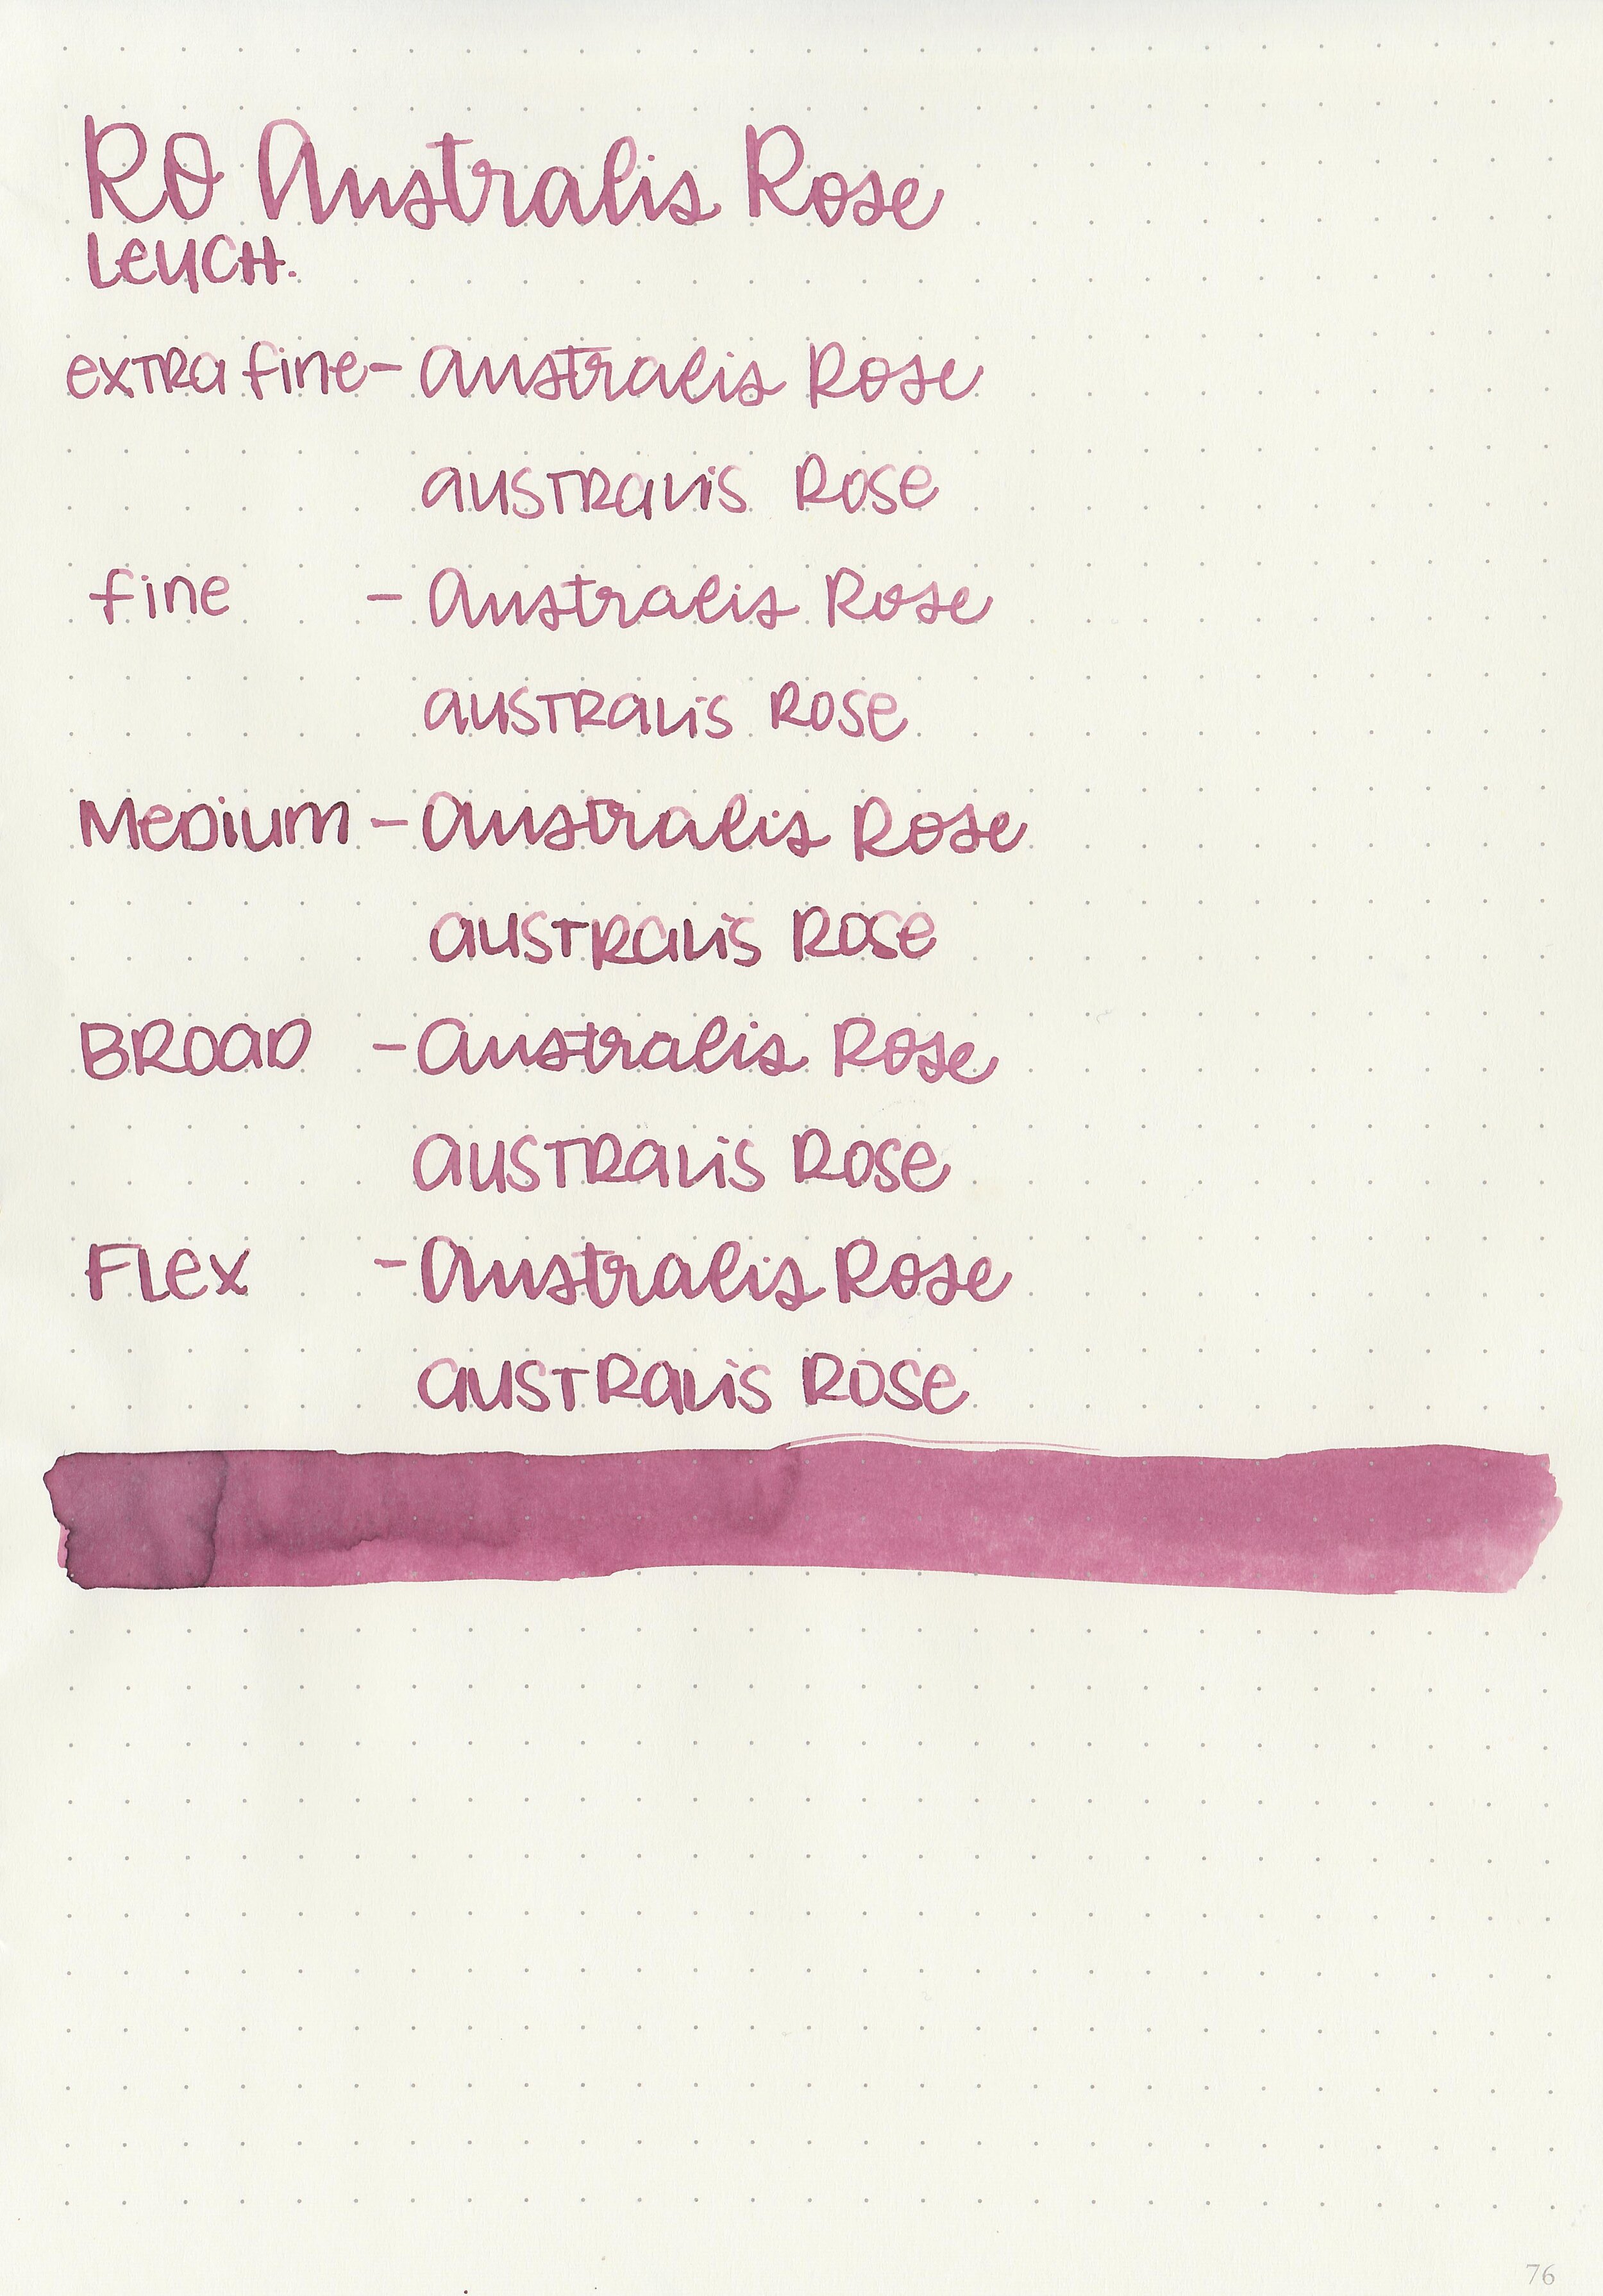 RO Australis Rose
LEUCH.
extra fine - Australis Rose
Australis Rose
fine - Australis Rose
Australis Rose
Medium - Australis Rose
Australis Rose
BROAD - Australis Rose
Australis Rose
Flex - Australis Rose
Australis Rose
76